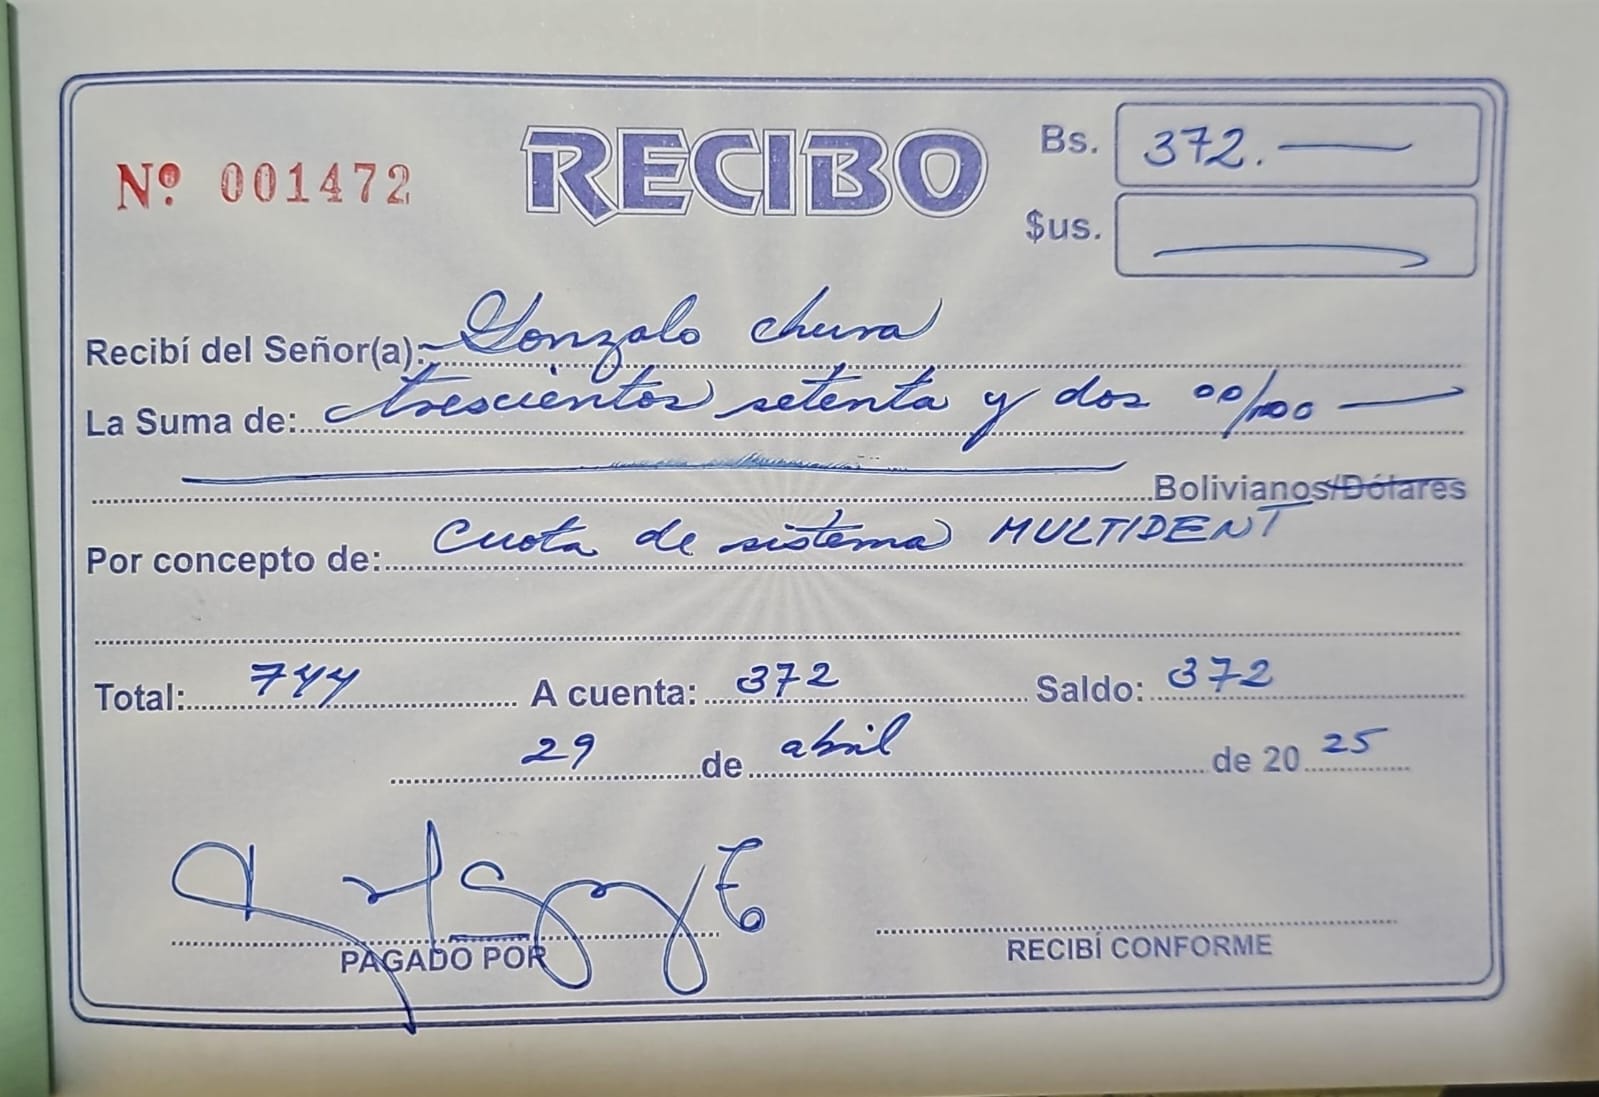 Nº 001472
RECIBO
Bs. 372.
$us.
Recibí del Señor(a): Gonzalo Chura
La Suma de: trescientos setenta y dos 00/100
Bolivianos/Dólares
Por concepto de: Cuota de sistema MULTIDENT
Total: 744 A cuenta: 372 Saldo: 372
29 de abril de 2025
PAGADO POR
RECIBÍ CONFORME